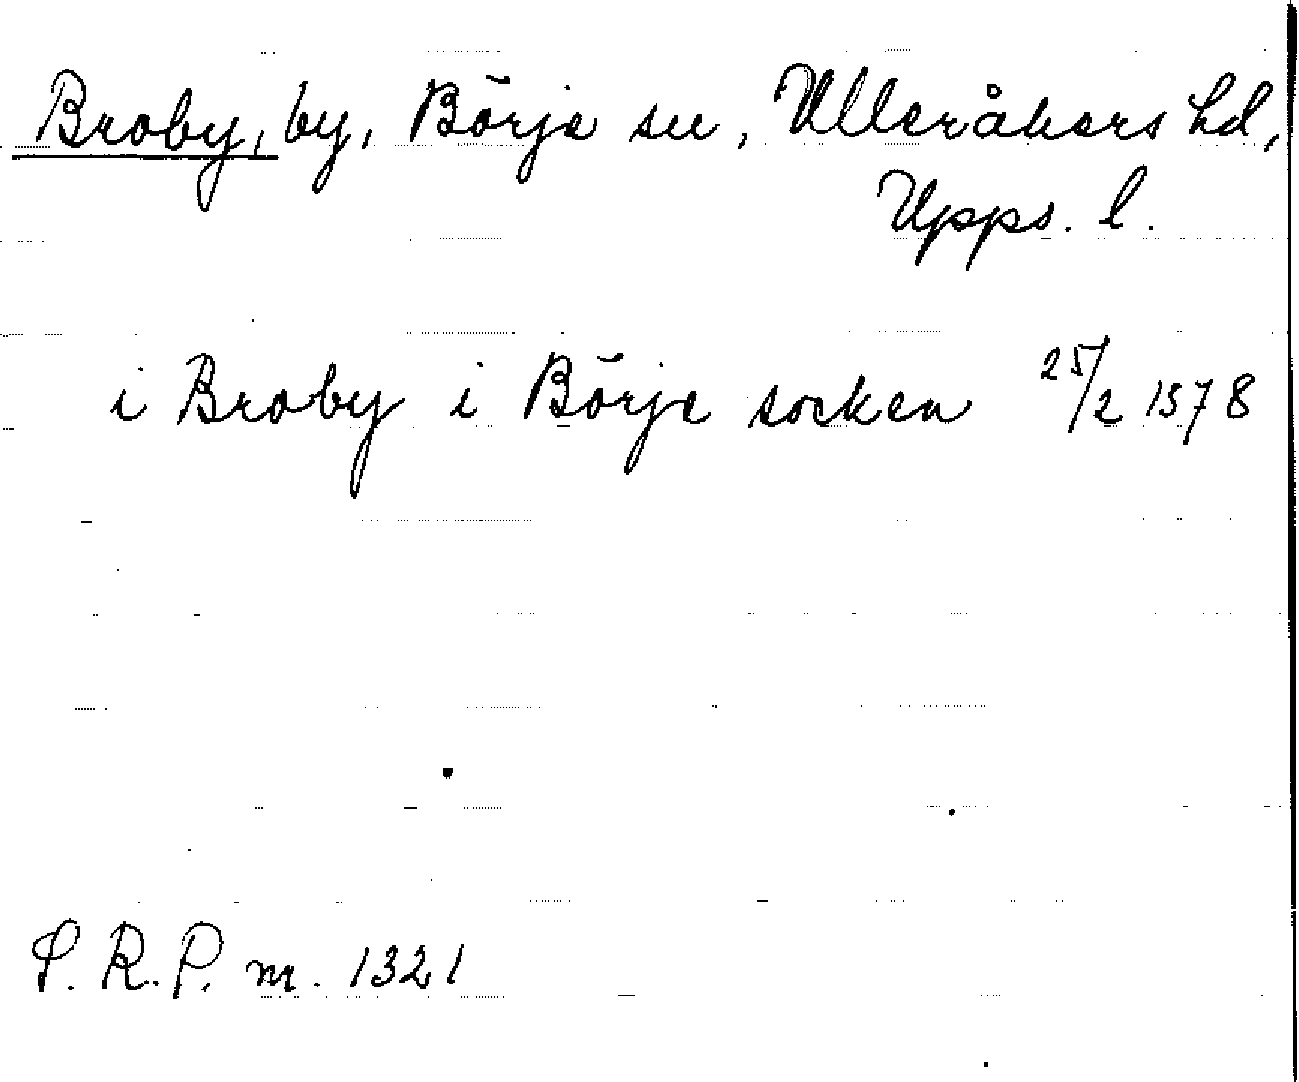 Broby, by, Börje sn, Ulleråkers hd,
Upps. l.
i Broby i Börje socken 25/2 1578
P. R. P. nr. 1321